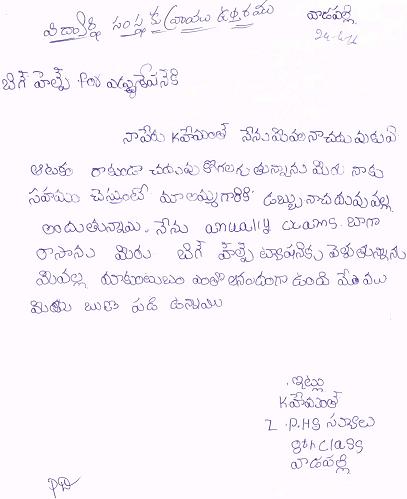 విద్యార్థి సంస్థకు వ్రాయు ఉత్తరము
వాడపల్లి
బిగ్ హెల్ప్ for ఎడ్యుకేషన్‌కి
నాపేరు K హేమంత్ నేను మీవల్ల నా చదువుకు ఏ
ఆటంకం రాకుండా చదువుకోగలుగుతున్నాను మీరు నాకు
సహయం చేస్తుంటే మా అమ్మగారికి డబ్బు నా చదువువల్ల
అందుతున్నాయి. నేను anually exams. బాగా
రాసాను మీరు బిగ్ హెల్ప్ వెళుతున్నాను
మీవల్ల మా కుటుంబం ఎంతో ఆనందంగా ఉంది మేము
మీకు ఋణ పడి ఉన్నాము
ఇట్లు
K హేమంత్
Z.P.HS స్కూలు
8th class
వాడపల్లి